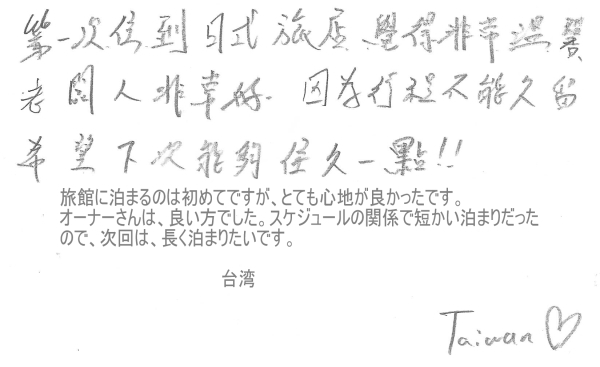 第一次住到日式旅店覺得非常溫馨
老闆人非常好. 因為行程不能久留
希望下次能夠住久一點!!
旅館に泊まるのは初めてですが、とても心地が良かったです。
オーナーさんは、良い方でした。スケジュールの関係で短かい泊まりだった
ので、次回は、長く泊まりたいです。
台湾
Taiwan♡